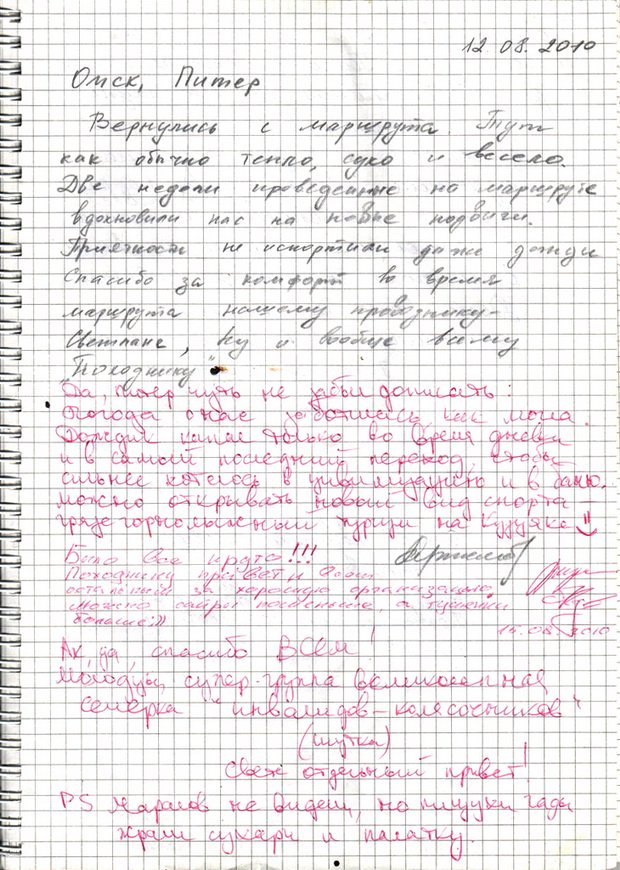 12.08.2010
Омск, Питер
Вернулись с маршрута. Тут
как обычно тепло, сухо и весело.
Две недели проведенные на маршруте
вдохновили нас на новые подвиги.
Приятности не испортили даже дожди
Спасибо за комфорт во время
маршрута нашему проводнику-
Светлане, ну и вообще всему
"Походнику"
Да, питер чуть не забыл дописать:
погода о нас заботилась как могла.
Дождик капал только во время дневки
и в самый последний переход, чтобы
сильнее хотелось в цивилизацию и в баню.
можно открывать новый вид спорта -
грязегорнолыжный туризм на
Было все круто!!!
Походнику привет и
остальным за хорошую организацию
можно сайры поменьше, а тушенки
больше:))
15.08.2010
Ах, да, спасибо Всем!
Молодцы, супер-группа великолепная
семерка "инвалидов-колясочников"
(шутка)
Свете отдельный привет!
PS Маралов не видели, но пищухи гады
жрали сухари и палатку.